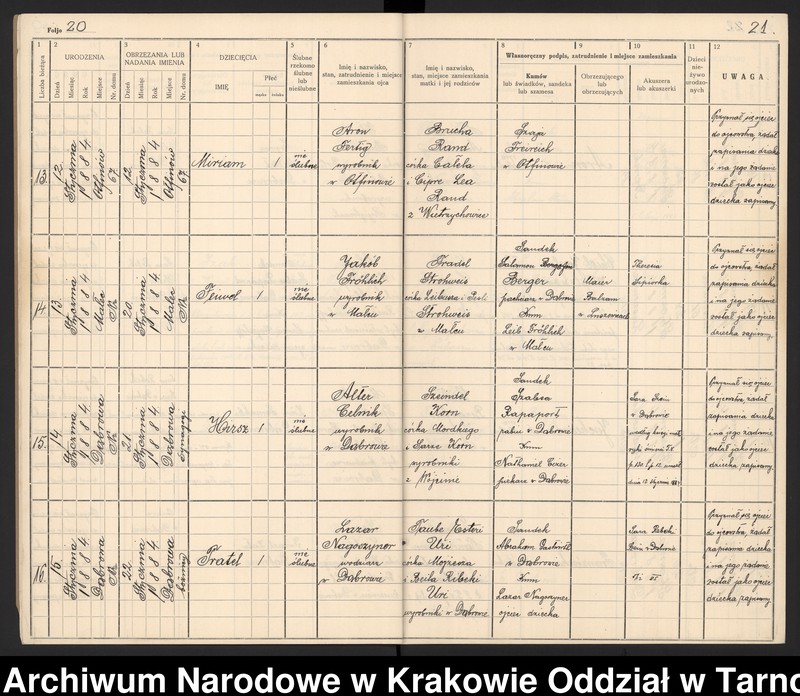 Foljo 20
21.
1
Liczba bieżąca
2
URODZENIA
Dzień
Miesiąc
Rok
Miejsce
Nr. domu
3
OBRZEZANIA LUB
NADANIA IMIENIA
Dzień
Miesiąc
Rok
Miejsce
Nr. domu
4
DZIECIĘCIA
IMIĘ
Płeć
męska
żeńska
5
Ślubne
rzekomo
ślubne
lub
nieślubne
6
Imię i nazwisko,
stan, zatrudnienie i miejsce
zamieszkania ojca
7
Imię i nazwisko,
stan, miejsce zamieszkania
matki i jej rodziców
Własnoręczny podpis, zatrudnienie i miejsce zamieszkania
8
Kumów
lub świadków, sandeka
lub szamesa
9
Obrzezującego
lub
obrzezujących
10
Akuszera
lub akuszerki
11
Dzieci
nie-
żywo
urodzo-
nych
12
UWAGA.
13.
12
Stycznia
1884
Otfinów
67
12
Stycznia
1884
Otfinów
67
Miriam
1
nie
ślubne
Aron
Fertig
wyrobnik
w Otfinowie
Brucha
Rand
córka Calela
i Cipre Lea
Rand
z Wietrzychowic
Freireich
w Otfinowie
Przyznał się ojciec
do ojcostwa, żądał
zapisania dziecka
i na jego żądanie
został jako ojciec
dziecka zapisany
14.
13
Stycznia
1884
20
Stycznia
1884
Feiwel
1
nie
ślubne
Jakób
Fröhlich
wyrobnik
w Malcu
Fradel
Strohweis
córka Leibusia i
Strohweis
w Malcu
Sandek
Salomon
Berger
w Dąbrowie
Kum
Leib Fröhlich
w Malcu
Maier
Theresia
Lipiorka
Przyznał się ojciec
do ojcostwa, żądał
zapisania dziecka
i na jego żądanie
został jako ojciec
dziecka zapisany
15.
14
Stycznia
1884
Dąbrowa
21
Stycznia
1884
Dąbrowa
Synagoga
Hersz
1
nie
ślubne
Alter
Celnik
wyrobnik
w Dąbrowie
Szeindel
Korn
córka Mordkaja
i Sarze Korn
wyrobniki
Sandek
Rapaport
rabin w Dąbrowie
Kum
Nathaniel
piekarz w Dąbrowie
Sara
w Dąbrowie
Przyznał się ojciec
do ojcostwa, żądał
zapisania dziecka
i na jego żądanie
został jako ojciec
dziecka zapisany
16.
15
Stycznia
1884
Dąbrowa
22
Stycznia
1884
Dąbrowa
Fratel
1
nie
ślubne
Lazar
Nagoszyner
w Dąbrowie
Taube Esteri
Uri
córka Mojżesza
i Beila Ribeki
Uri
wyrobniki w Dąbrowie
Sandek
Abraham
w Dąbrowie
Kum
Lazar Nagoszyner
ojciec dziecka
Sara Ribeka
w Dąbrowie
Przyznał się ojciec
do ojcostwa, żądał
zapisania dziecka
i na jego żądanie
został jako ojciec
dziecka zapisany
Archiwum Narodowe w Krakowie Oddział w Tarno